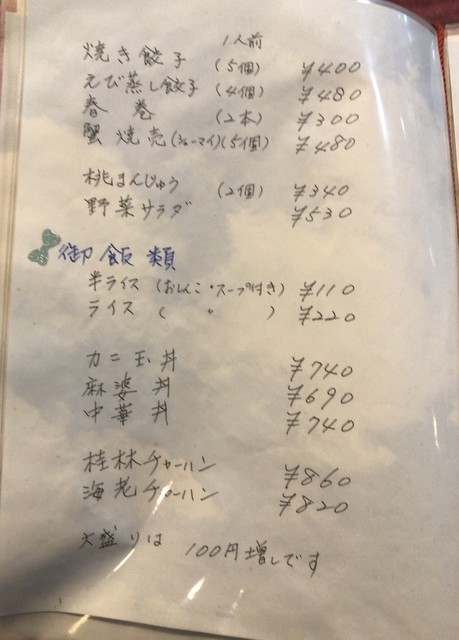 1人前
焼き餃子 (5個) ¥400
えび蒸し餃子 (4個) ¥480
春巻 (2本) ¥300
蟹焼売(シューマイ)(5個) ¥480
桃まんじゅう (2個) ¥340
野菜サラダ ¥530
御飯類
半ライス (おしんこ・スープ付き) ¥110
ライス ( 〃 ) ¥220
カニ玉丼 ¥740
麻婆丼 ¥690
中華丼 ¥740
桂林チャーハン ¥860
海老チャーハン ¥820
大盛りは 100円増しです